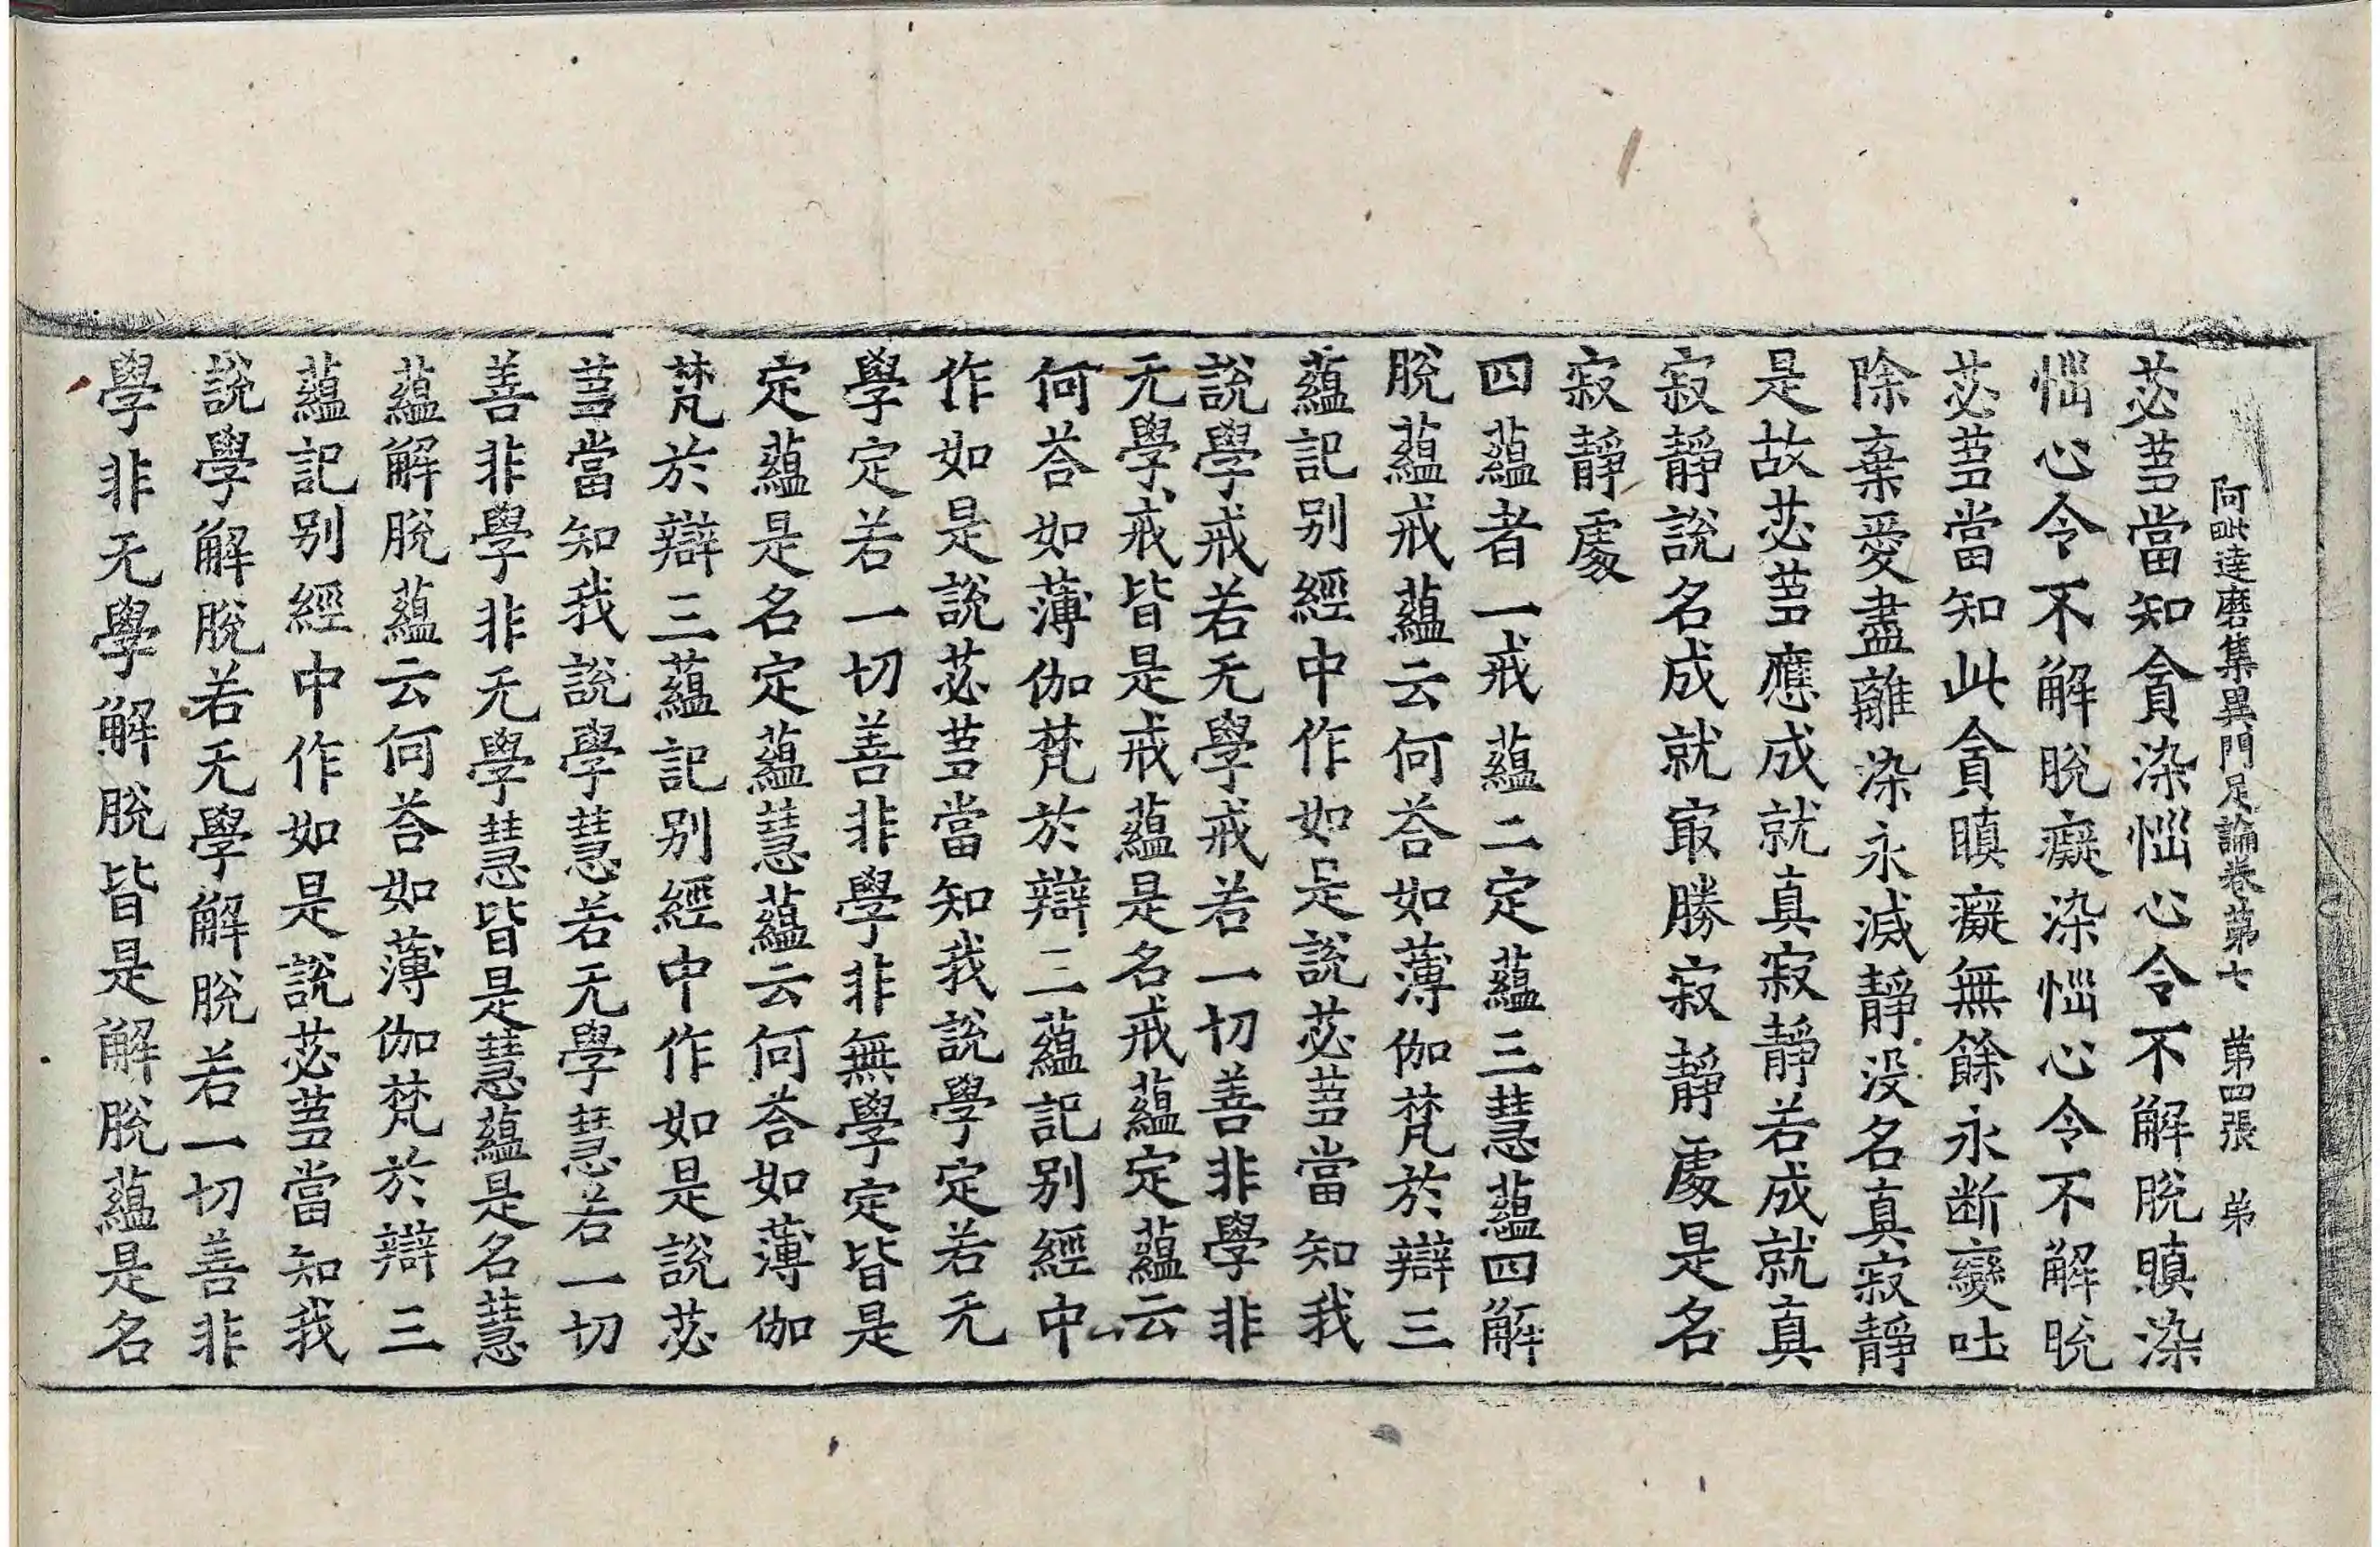 阿毗達磨集異門足論卷苐七 苐四張 弟
苾蒭當知貪染惱心令不解脫瞋染
惱心令不解脫癡染惱心令不解脫
苾蒭當知此貪瞋癡無餘永断變吐
除棄愛盡離染永滅靜没名真寂靜
是故苾蒭應成就真寂靜若成就真
寂靜說名成就㝡勝寂靜處是名
寂靜處
四蘊者一戒蘊二定蘊三慧蘊四解
脫蘊戒蘊云何荅如薄伽梵於辯三
蘊記别經中作如是說苾蒭當知我
說學戒若无學戒若一切善非學非
无學戒皆是戒蘊是名戒蘊定蘊云
何荅如薄伽梵於辯三蘊記别經中
作如是說苾蒭當知我說學定若无
學定若一切善非學非無學定皆是
定蘊是名定蘊慧蘊云何荅如薄伽
梵於辯三蘊記别經中作如是說苾
蒭當知我說學慧若无學慧若一切
善非學非无學慧皆是慧蘊是名慧
蘊解脫蘊云何荅如薄伽梵於辯三
蘊記别經中作如是說苾蒭當知我
說學解脫若无學解脫若一切善非
學非无學解脫皆是解脫蘊是名